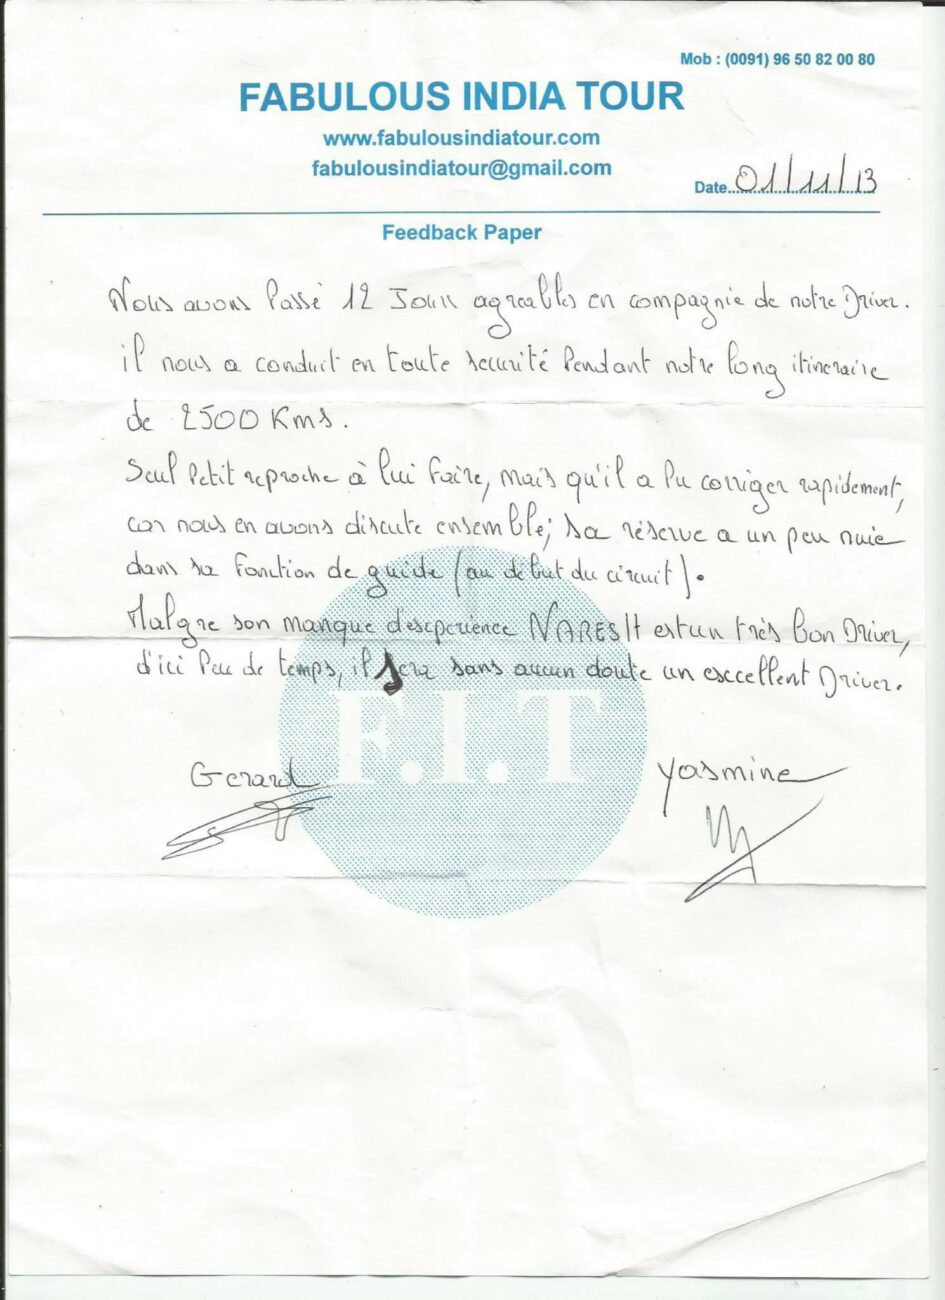 Mob : (0091) 96 50 82 00 80
FABULOUS INDIA TOUR
www.fabulousindiatour.com
fabulousindiatour@gmail.com
Date....01/11/13
Feedback Paper
Nous avons Passé 12 Jours agreables en compagnie de notre Driver.
il nous a conduit en toute securité Pendant notre long itineraire
de 2500 Kms.
Seul Petit reproche à lui Faire, mais qu'il a Pu corriger rapidement,
car nous en avons discute ensemble; sa réserve a un peu nuie
dans sa Fonction de guide (au début du circuit).
Malgre son manque d'esperience NARESH est un très Bon Driver,
d'ici Peu de temps, il sera sans aucun doute un excellent Driver.
Gerard
Yasmine
F.I.T